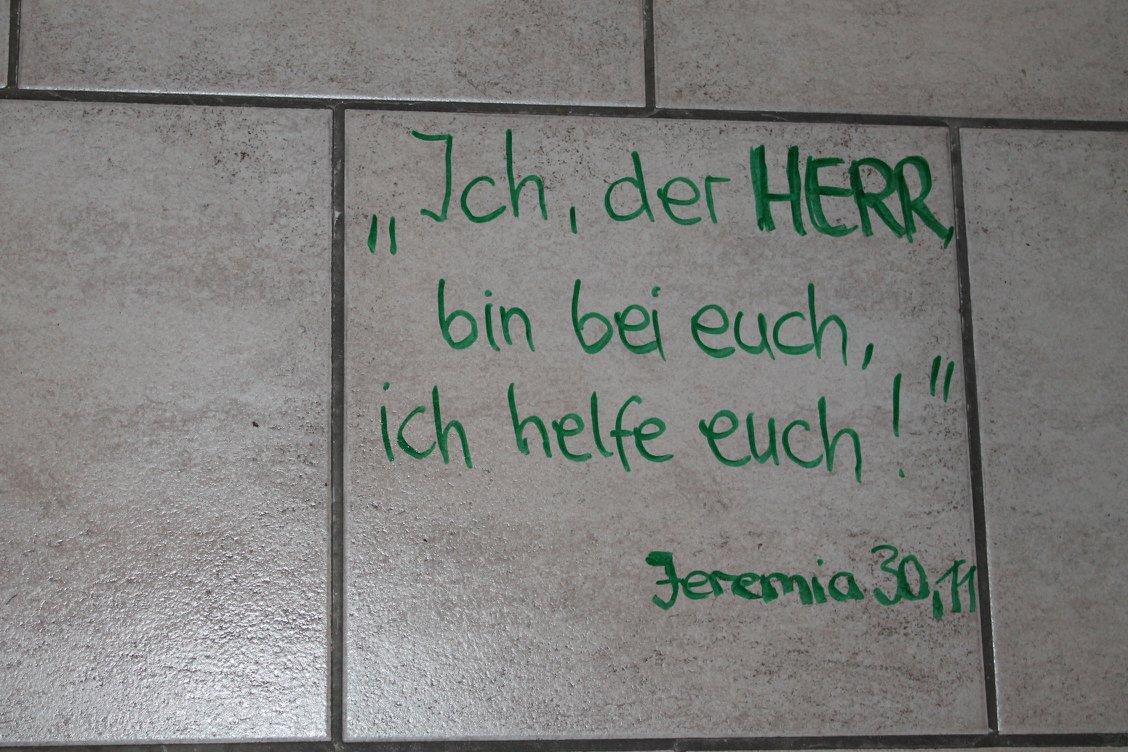 „Ich, der HERR,
bin bei euch,
ich helfe euch!"
Jeremia 30,11